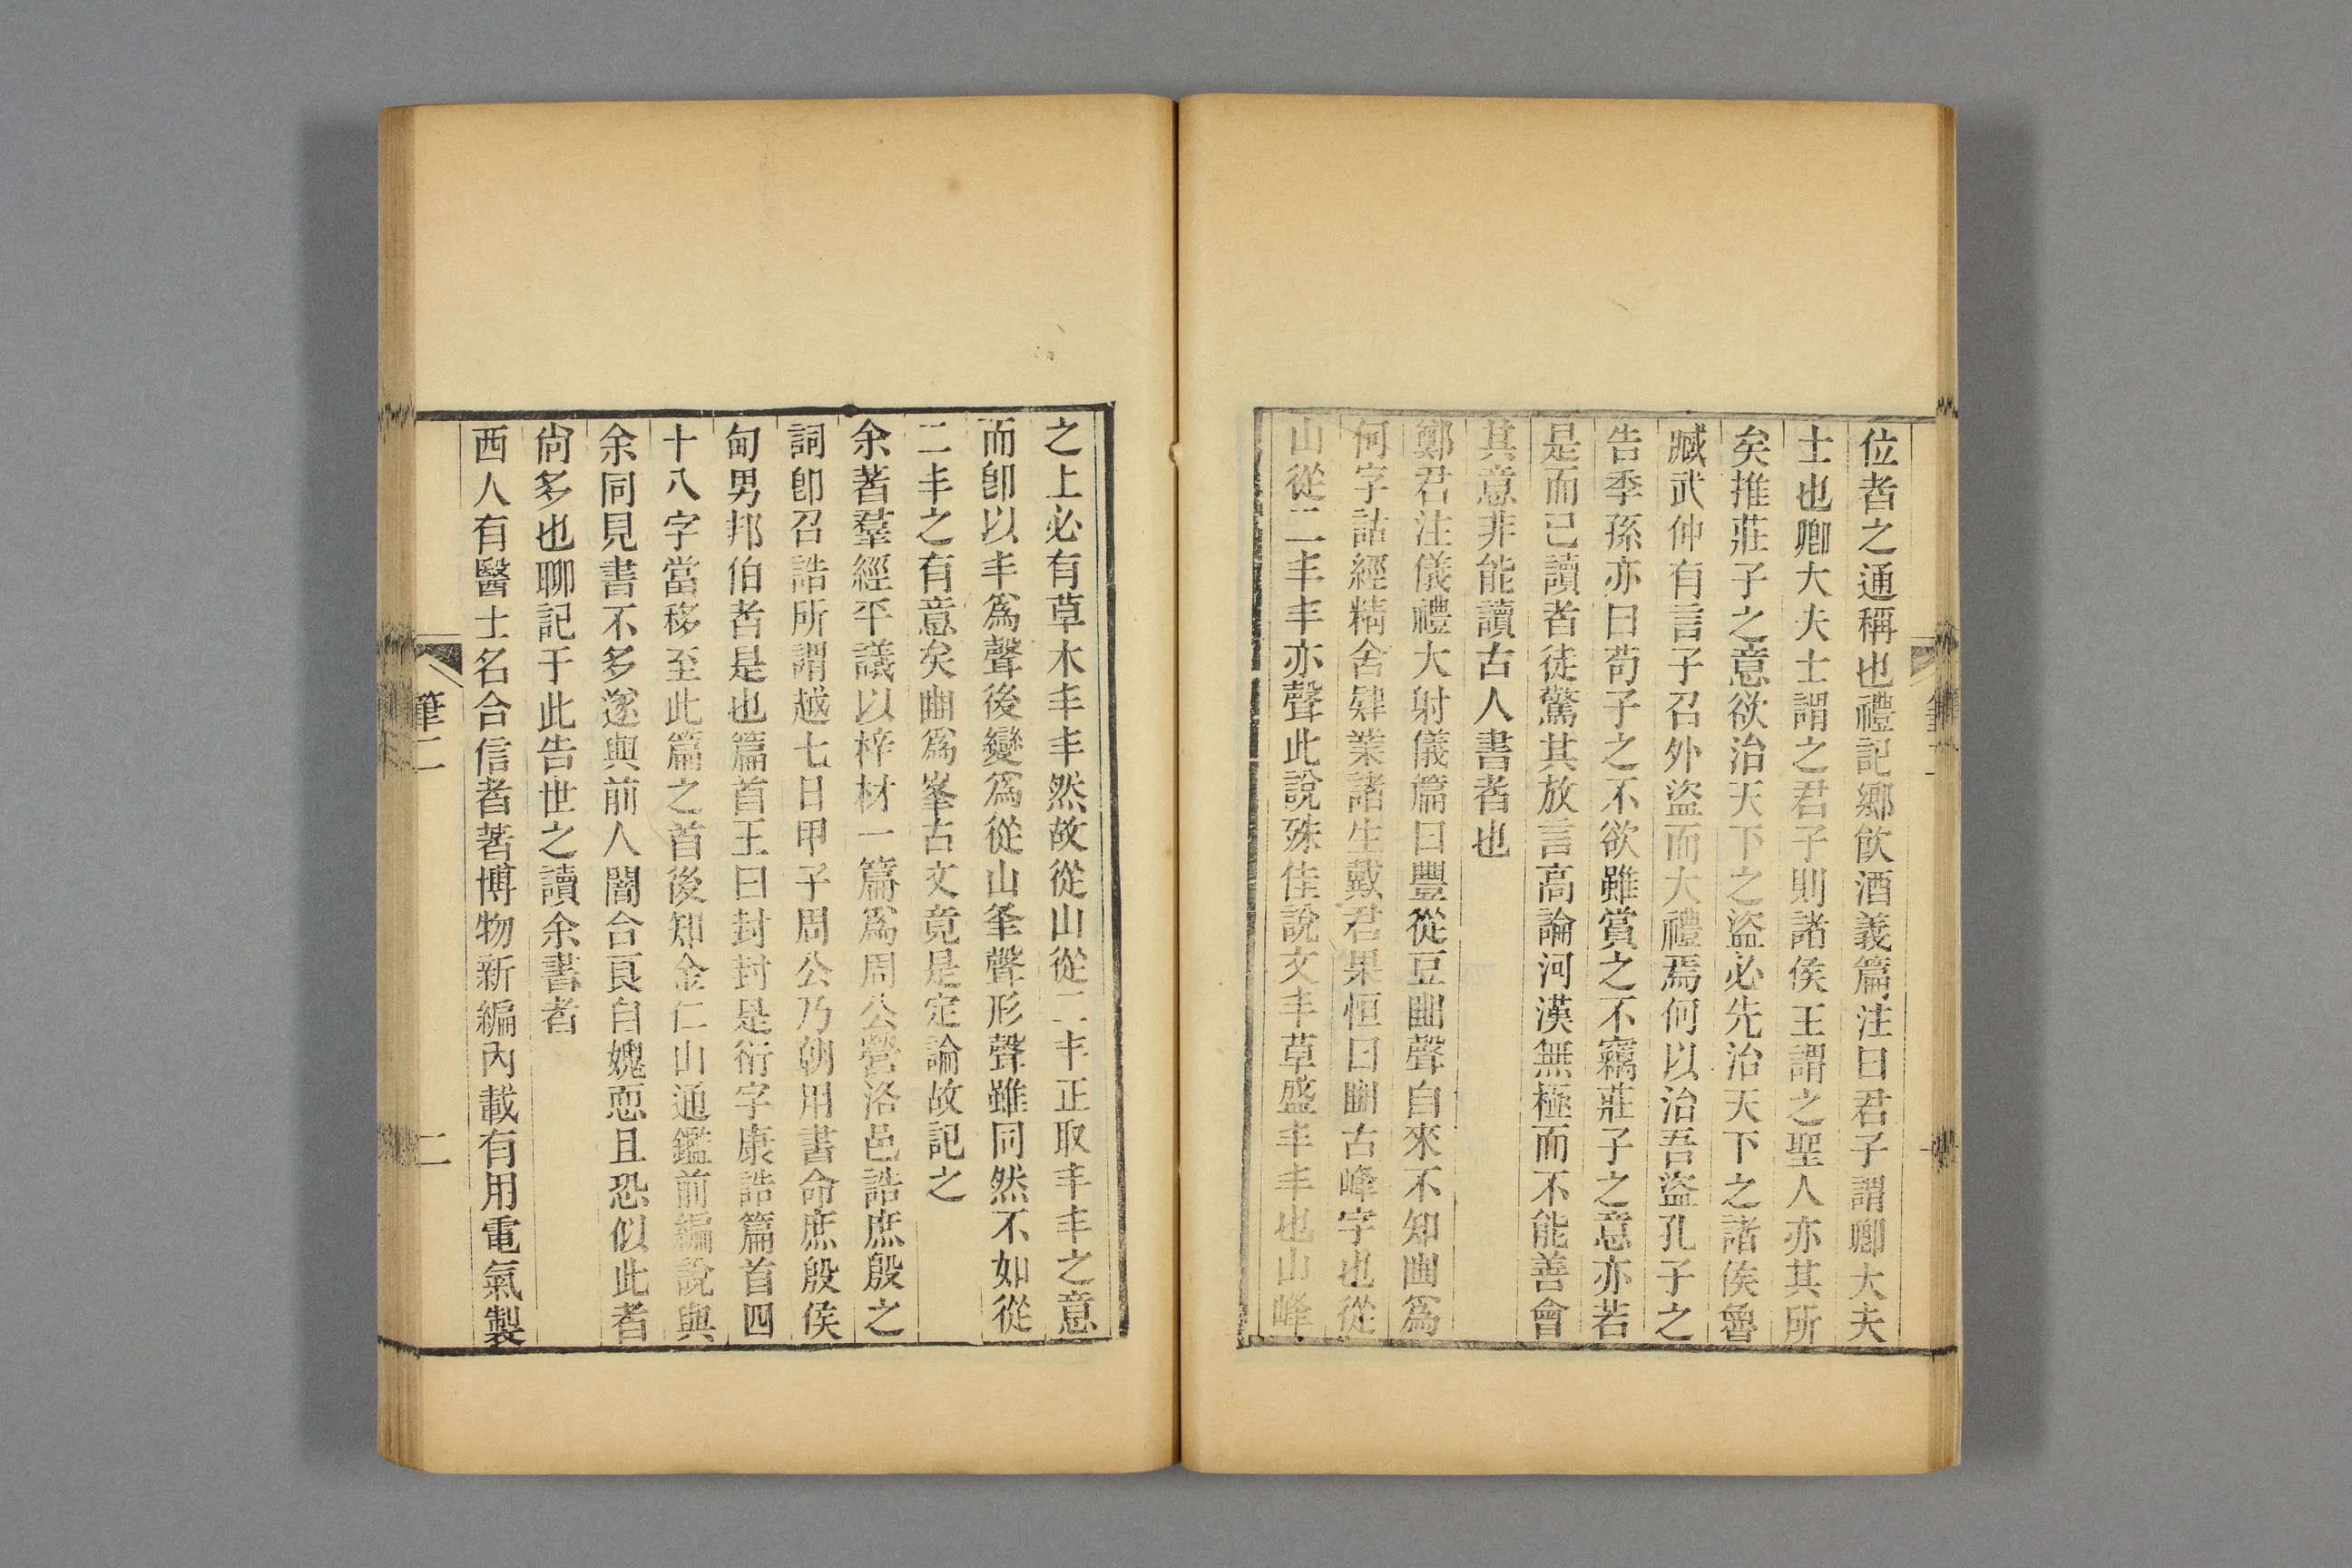 位者之通稱也禮記鄉飮酒義篇注曰君子謂卿大夫
士也卿大夫士謂之君子則諸侯王謂之聖人亦其所
矣推莊子之意欲治天下之盜必先治天下之諸侯魯
臧武仲有言子召外盜而大禮焉何以治吾盜孔子之
告季孫亦曰苟子之不欲雖賞之不竊莊子之意亦若
是而已讀者徒驚其放言高論河漢無極而不能善會
其意非能讀古人書者也
鄭君注儀禮大射儀篇曰豐從豆𠁳聲自來不知𠁳爲
何字詁經精舍肄業諸生戴君果恒曰𠁳古峰字也從
山從二丰丰亦聲此說殊佳說文丰草盛丰丰也山峰
之上必有草木丰丰然故從山從二丰正取丰丰之意
而卽以丰爲聲後變爲從山夆聲形聲雖同然不如從
二丰之有意矣𠁳爲峯古文竟是定論故記之
余著羣經平議以梓材一篇爲周公營洛邑誥庶殷之
詞卽召誥所謂越七日甲子周公乃朝用書命庶殷侯
甸男邦伯者是也篇首王曰封封是衍字康誥篇首四
十八字當移至此篇之首後知金仁山通鑑前編說與
余同見書不多遂與前人闇合良自媿恧且恐似此者
尙多也聊記于此告世之讀余書者
西人有醫士名合信者著博物新編內載有用電氣製
筆二
二